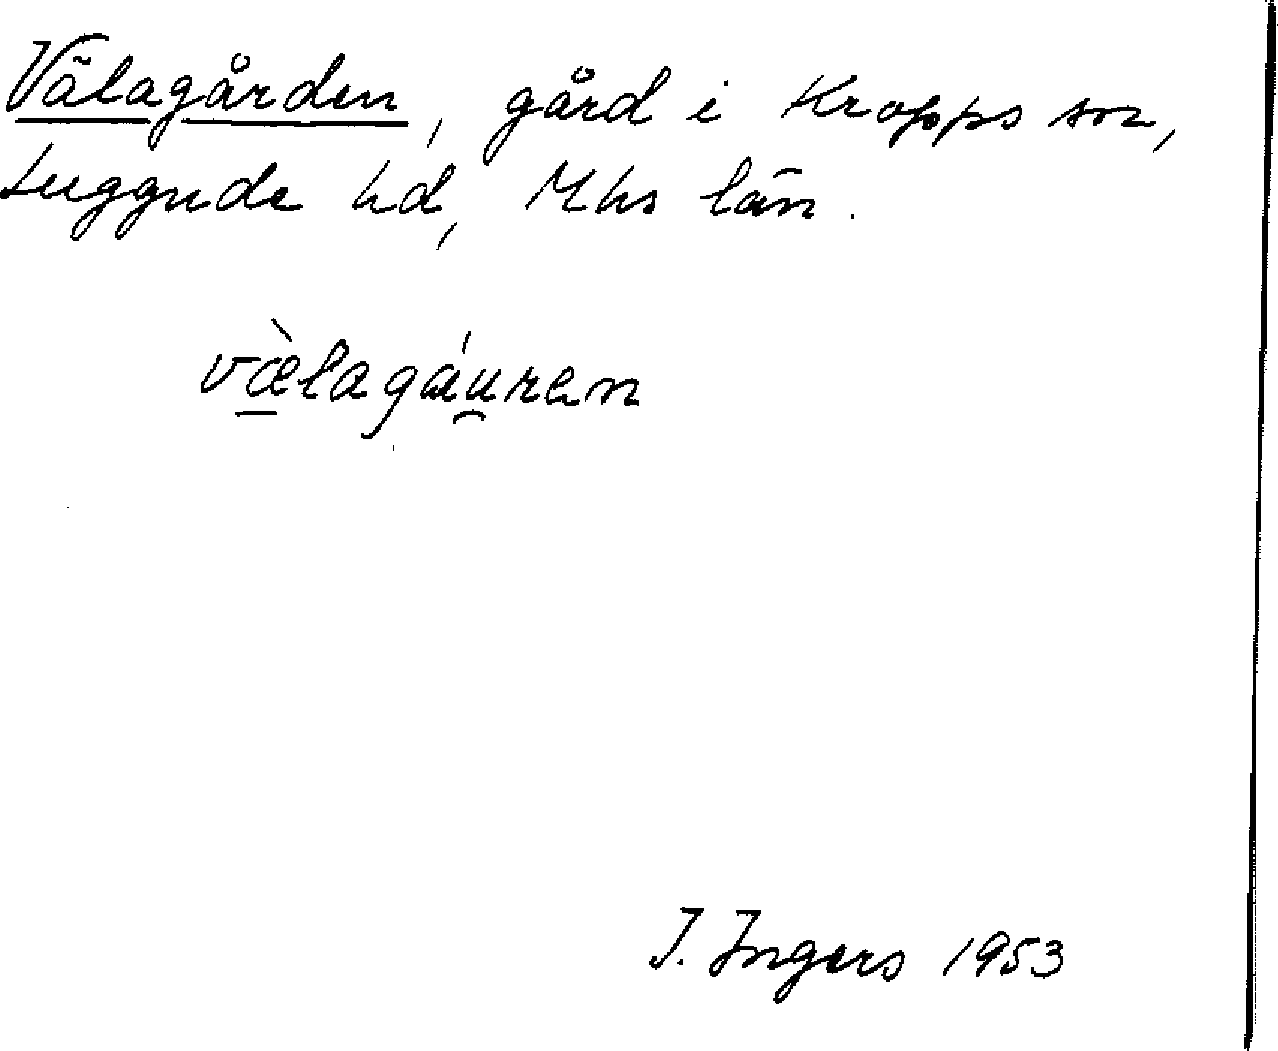 Välagården, gård i Kropps sn,
Luggude hd, Mhs län.
væ̀lagáu̯ren
I. Ingers 1953